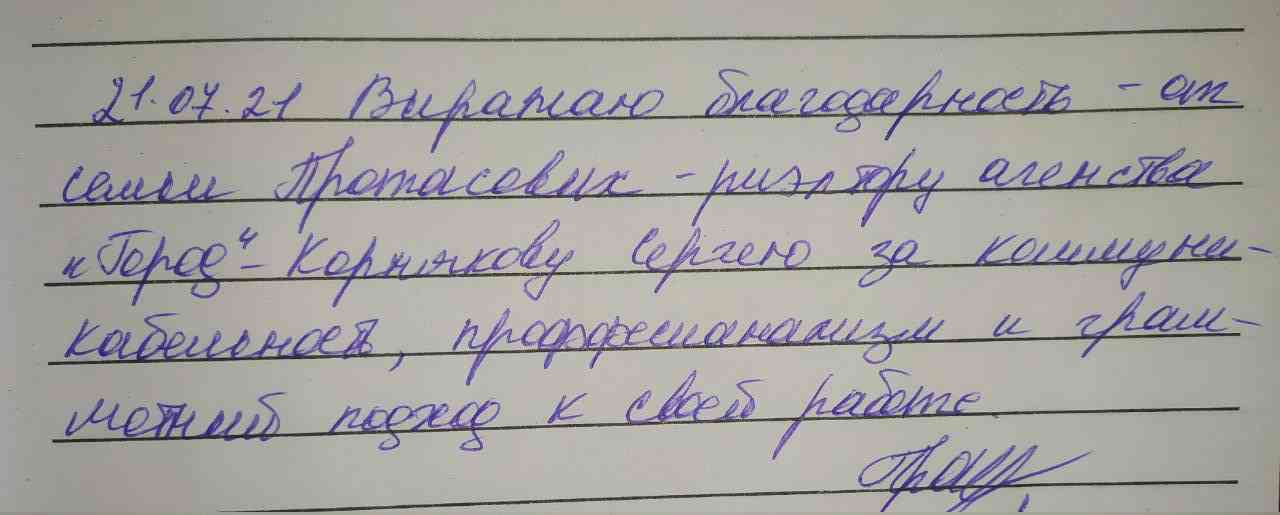 21.07.21 Выражаю благодарность - от
семьи Протасовых - риэлтору агенства
"Город" - Корнякову Сергею за коммуни-
кабельность, проффесианализм и грам-
мотный подход к своей работе.